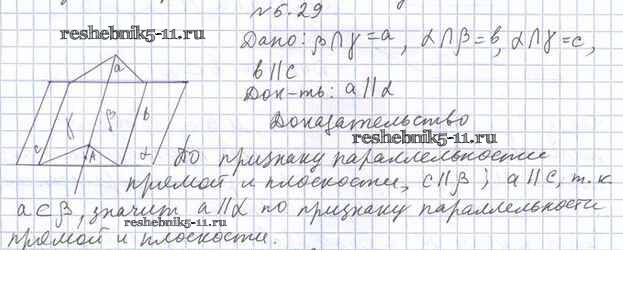 №5.29
reshebnik5-11.ru
Дано: β∩γ=a, α∩β=b, α∩γ=c,
b∥c
Док-ть: a∥α
Доказательство
reshebnik5-11.ru
По признаку параллельности
прямой и плоскости, c∥β; a∥c, т.к
a⊂β, значит a∥α по признаку параллельности
прямой и плоскости.
reshebnik5-11.ru
a
γ
β
b
c
A
α